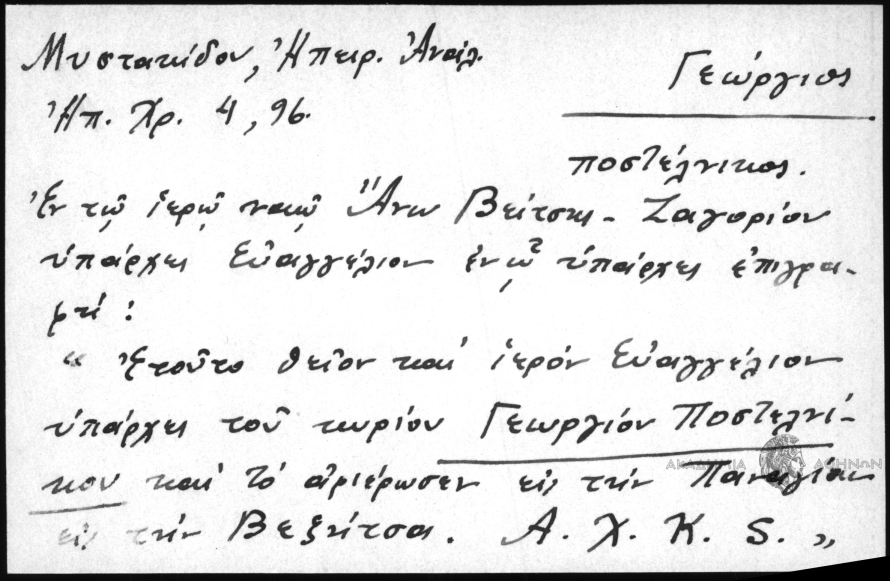 Μυστακίδου, Ἠπειρ. Ἀνάλ.
Γεώργιος
Ἠπ. Χρ. 4, 96.
ποστέλνικος.
Ἐν τῷ ἱερῷ ναῷ Ἄνω Βείτσης - Ζαγορίου
ὑπάρχει Εὐαγγέλιον ἐν ᾧ ὑπάρχει ἐπιγρα-
φή :
“ Ἐτοῦτο θεῖον καί ἱερόν Εὐαγγέλιον
ὑπάρχει τοῦ κυρίου Γεωργίου Ποστελνί-
κου καί τό ἀφιέρωσεν εἰς τήν Παναγίαν
εἰς τήν Βεξνίτσα. Α. Χ. Κ. S. „
ΑΚΑΔΗΜΙΑ ΑΘΗΝΩΝ